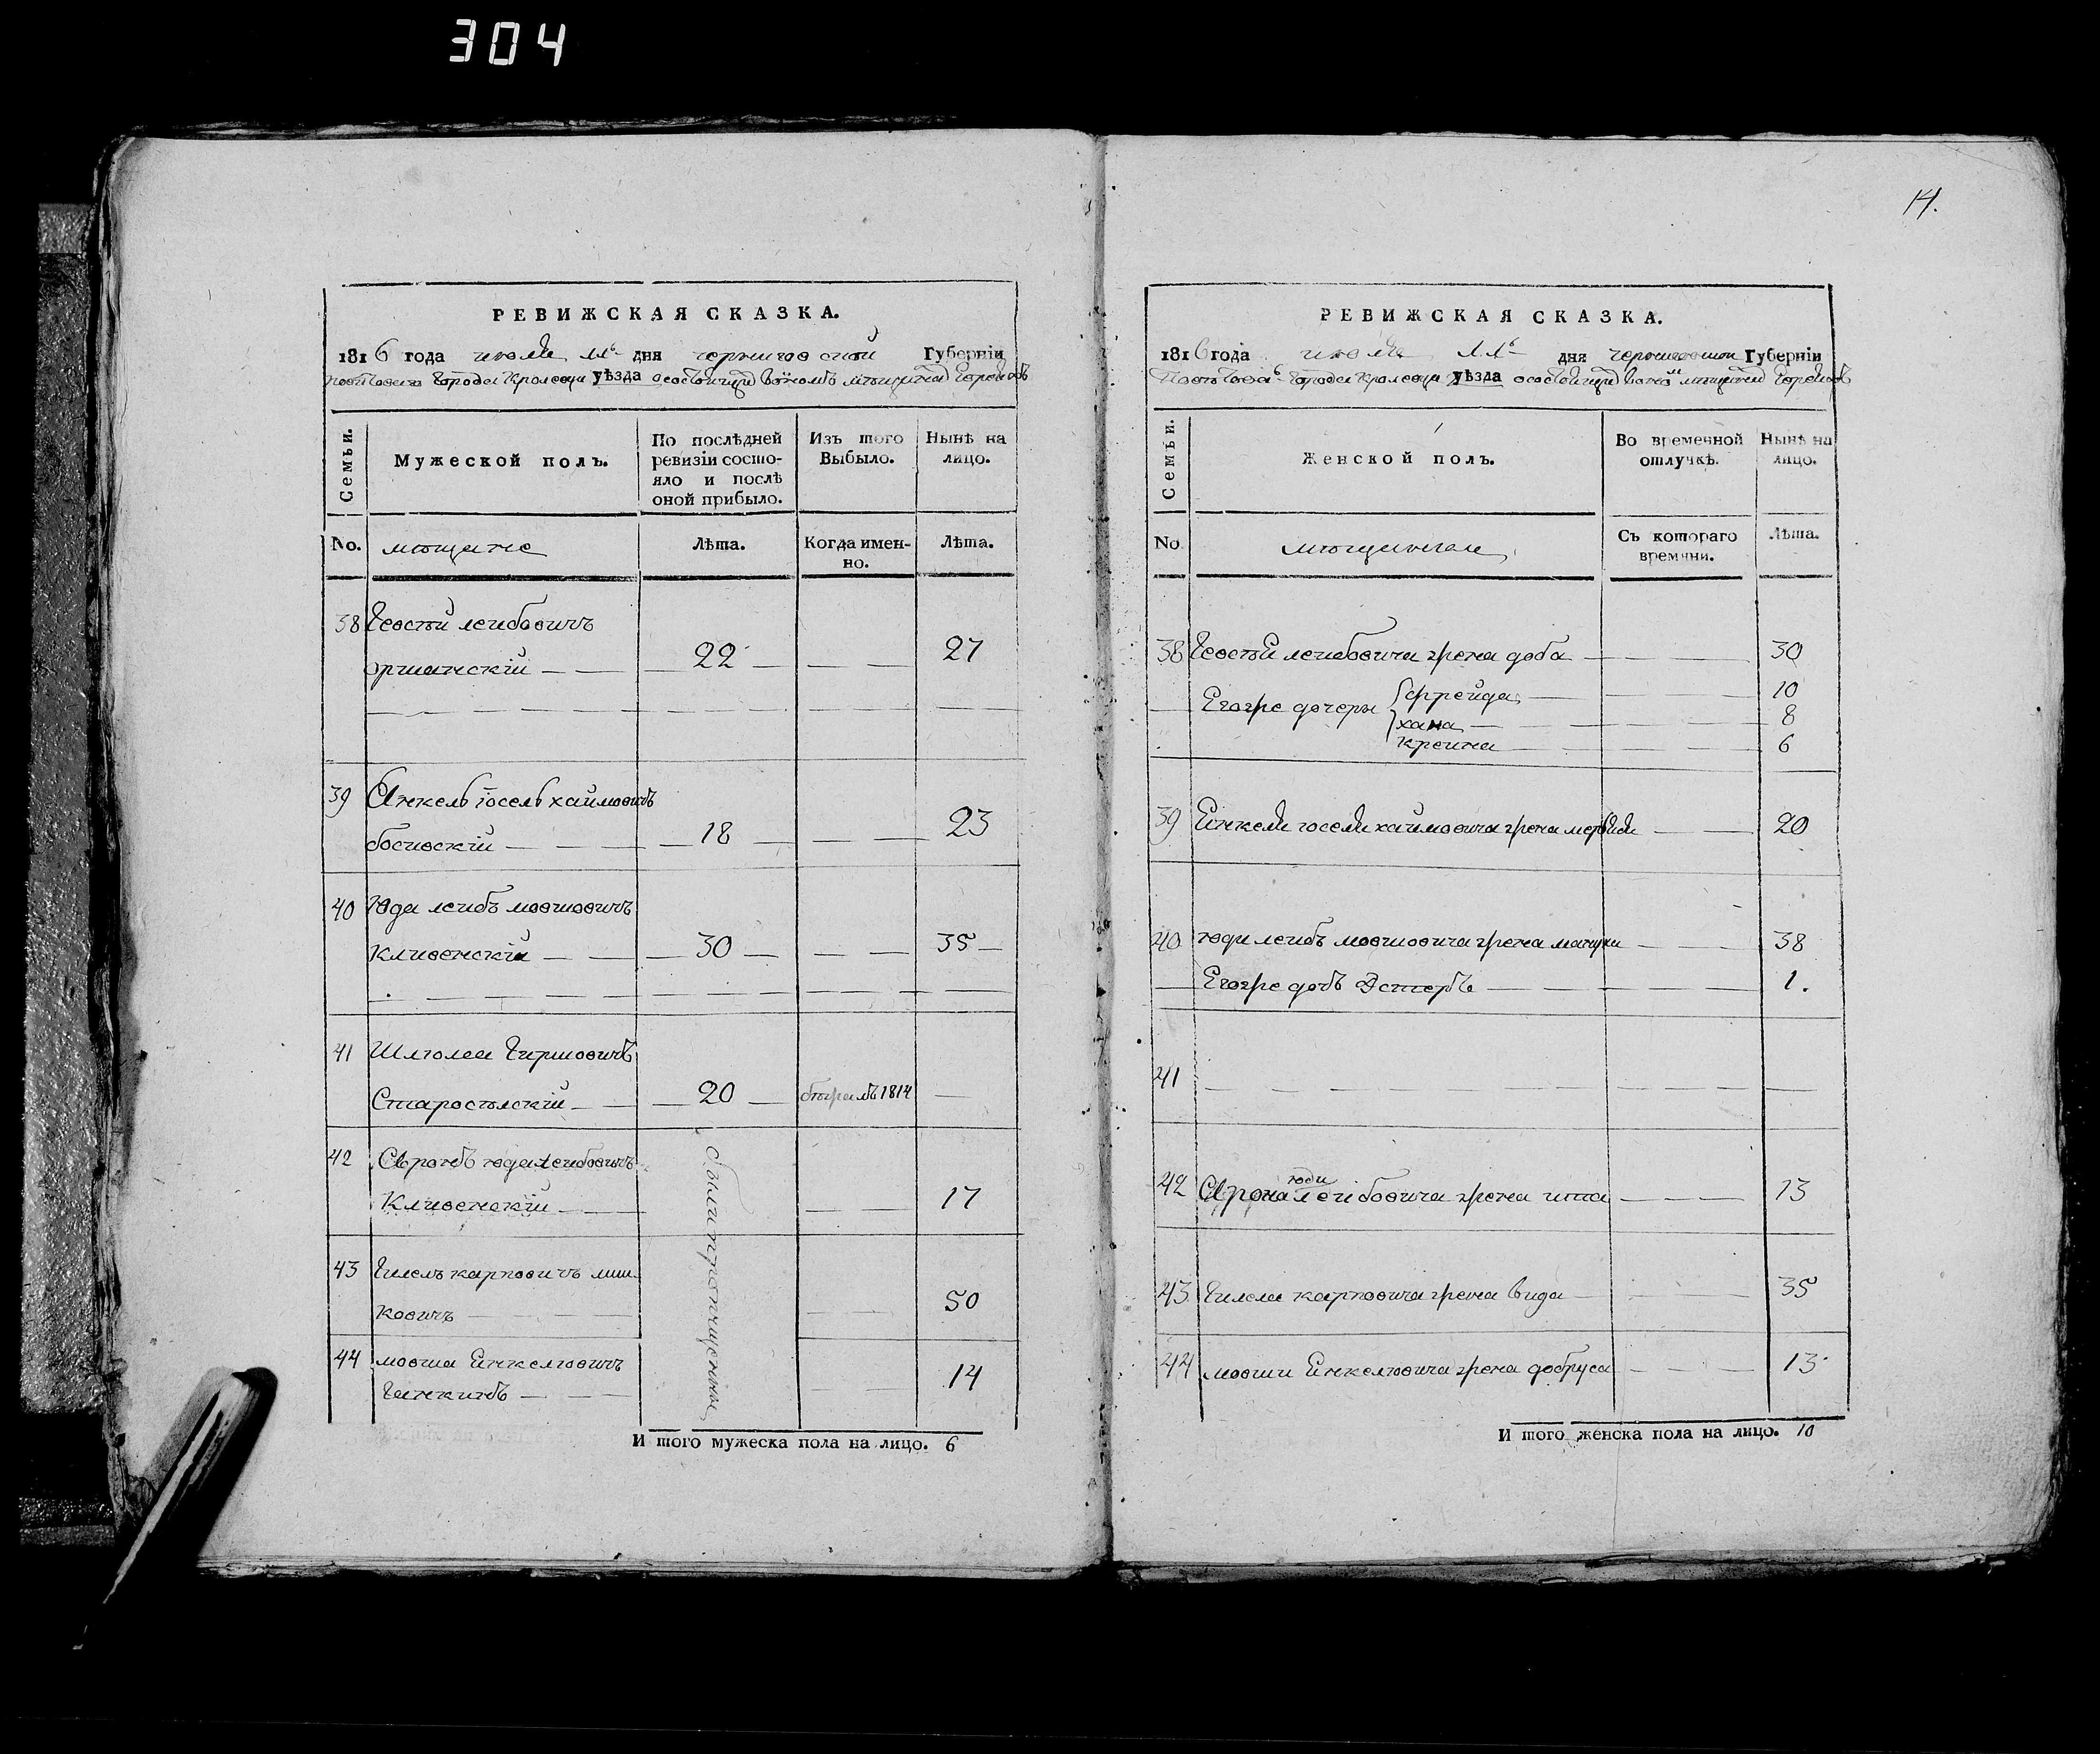 304
РЕВИЖСКАЯ СКАЗКА.
1816 года июля дня черниговской Губерніи
города Кролевца уѣзда о состоящихъ въ ономъ мѣщанахъ Евреяхъ
Семьи.
Мужеской полъ.
По послѣдней ревизіи состояло и послѣ оной прибыло.
Изъ того Выбыло.
Нынѣ на лицо.
No.
мѣщане
Лѣта.
Когда именно.
Лѣта.
38 Евсѣй лейбовичъ
оршанскій 22 27
39 Янкель іосель хаимовичъ
18 23
40 Юда лейбъ мовшовичъ
Кливенскій 30 35
41 Шліома Гиршовичъ
Старосельскій 20 1814
42 Аронъ юдалейбовичъ
Кливенскій 17
43 Гилель карповичъ миш-
ковичъ 50
44 мовша Енкелювичъ
Гинкинъ 14
были пропущенны
И того мужеска пола на лицо. 6
14.
РЕВИЖСКАЯ СКАЗКА.
1816 года июля дня черниговской Губерніи
города Кролевца уѣзда о состоящихъ въ ономъ мѣщанахъ Евреяхъ
Семьи.
Женской полъ.
Во временной отлучкѣ.
Нынѣ на лицо.
No
мѣщанки
Съ котораго времяни.
Лѣта.
38 Евсѣя лейбовича жена доба 30
Егоже дочери фрейда 10
хана 8
креина 6
39 Енкеля іоселя хаимовича жена 20
40 юди лейбъ мовшовича жена 38
Егоже дочь Эстеръ 1.
41
42 Арона юди лейбовича жена ита 13
43 Гилеля карповича жена вида 35
44 мовши Енкелювича жена добруса 13
И того женска пола на лицо. 10